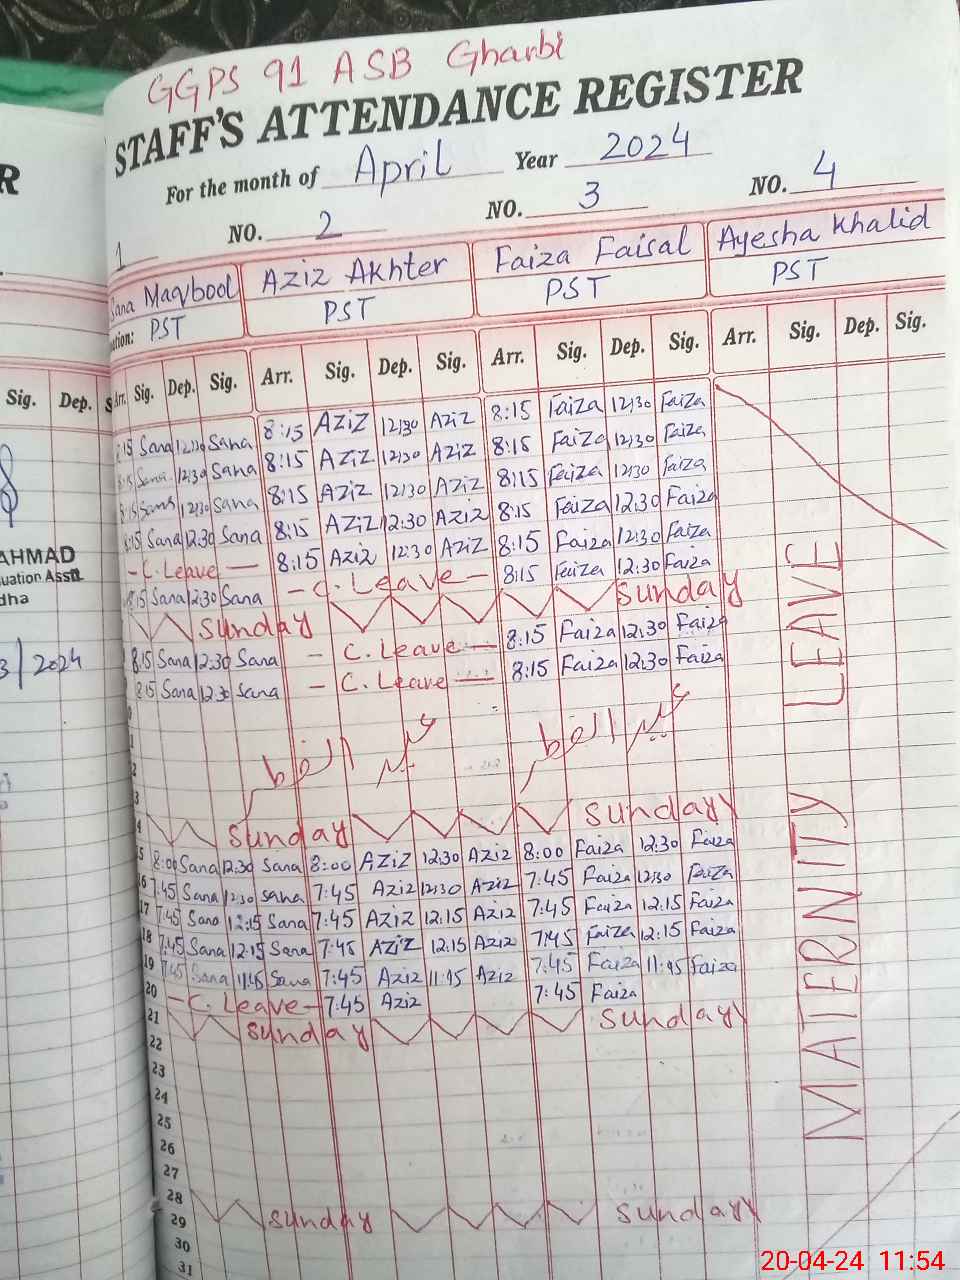 GGPS 91 ASB Gharbi
STAFF'S ATTENDANCE REGISTER
R
For the month of April Year 2024
1 NO. 2 NO. 3 NO. 4
Sana Maqbool Aziz Akhter Faiza Faisal Ayesha Khalid
PST PST PST PST
Sig. Dep. Arr. Sig. Dep. Sig. Arr. Sig. Dep. Sig. Arr. Sig. Dep. Sig. Arr. Sig. Dep. Sig.
8:15 Sana 12:30 Sana 8:15 AZIZ 12:30 AZIZ 8:15 Faiza 12:30 Faiza
8:15 Sana 12:30 Sana 8:15 AZIZ 12:30 AZIZ 8:15 Faiza 12:30 Faiza
8:15 Sana 12:30 Sana 8:15 AZIZ 12:30 AZIZ 8:15 Faiza 12:30 Faiza
8:15 Sana 12:30 Sana 8:15 AZIZ 12:30 AZIZ 8:15 Faiza 12:30 Faiza
- C. Leave - 8:15 AZIZ 12:30 AZIZ 8:15 Faiza 12:30 Faiza
8:15 Sana 12:30 Sana - C. Leave - 8:15 Faiza 12:30 Faiza
Sunday Sunday
8:15 Sana 12:30 Sana - C. Leave - 8:15 Faiza 12:30 Faiza
8:15 Sana 12:30 Sana - C. Leave - 8:15 Faiza 12:30 Faiza
عید الفطر عید الفطر
Sunday Sunday
15 8:00 Sana 12:30 Sana 8:00 AZIZ 12:30 AZIZ 8:00 Faiza 12:30 Faiza
16 7:45 Sana 12:30 Sana 7:45 AZIZ 12:30 AZIZ 7:45 Faiza 12:30 Faiza
17 7:45 Sana 12:15 Sana 7:45 AZIZ 12:15 AZIZ 7:45 Faiza 12:15 Faiza
18 7:45 Sana 12:15 Sana 7:45 AZIZ 12:15 AZIZ 7:45 Faiza 12:15 Faiza
19 7:45 Sana 11:45 Sana 7:45 AZIZ 11:45 AZIZ 7:45 Faiza 11:45 Faiza
20 - C. Leave - 7:45 AZIZ 7:45 Faiza
21 Sunday Sunday
22
23
24
25
26
27
28 Sunday Sunday
29
30
31
MATERNITY LEAVE
AHMAD
uation Asstt
dha
3/2024
20-04-24 11:54